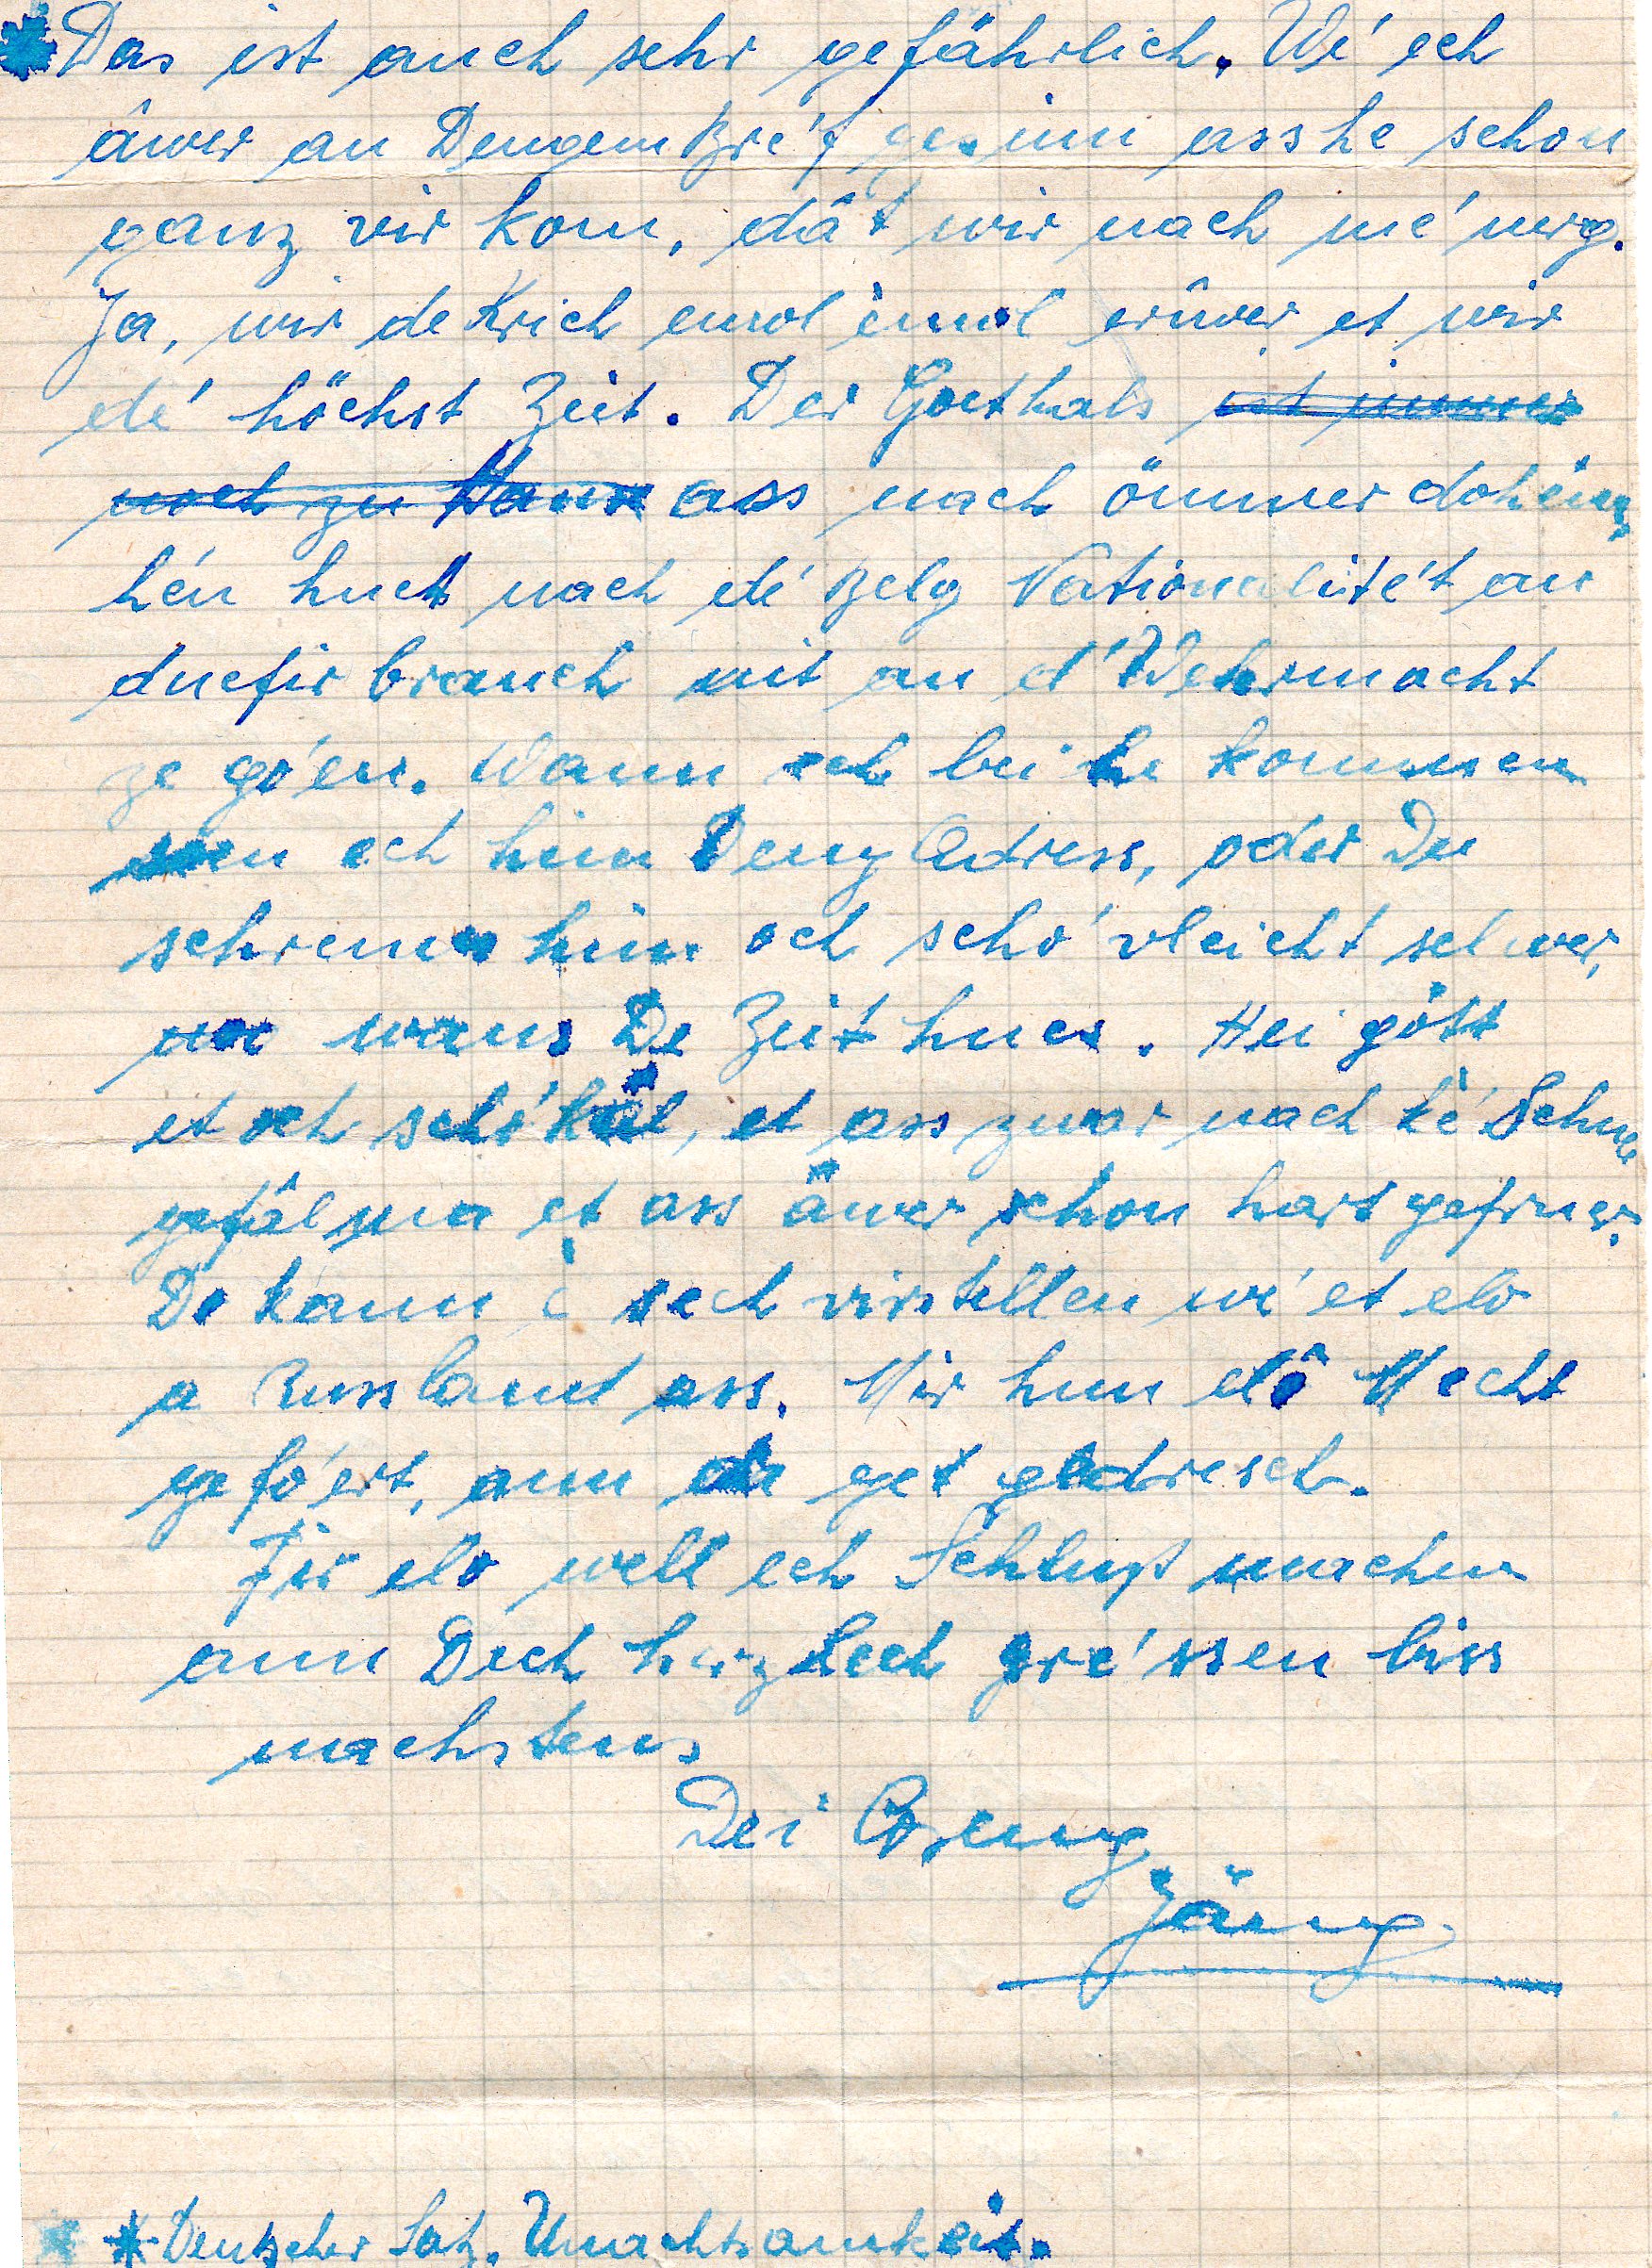 * Das ist auch sehr gefährlich. We' ech
âwer an Dengem Bre'f gesinn ass he schon
ganz vir kom, dât wir nach me' uerg.
Ja, wir de Krich emol èmol eriwer et wir
de' höchst Zeit. Der Goethals ist immer
noch zu Haus ass nach ömmer dohém,
hén huet nach de' Belg Nationalite't an
duefir brauch nit an d'Wehrmacht
ze go'en. Wann ech bei he kommen
ech him Deng Adress, oder Du
schreiws him och scho' vleicht selwer,
wanns De Zeit hues. Hei gött
et och scho' kâl, et ass zwar nach ke' Schne
gefâl ma et ass âwer schon hart gefruer.
De kann é sech virstellen we' et elo
a Russland ass. Mir hun dô Mecht
gefo'ert, ann da get gedresch.
Fir elo well ech Schluß machen
ann Dech herzlech gre'ssen biss
nachstens
Dei Cseng
Jäng
* Deutscher Satz. Unachtsamkeit.